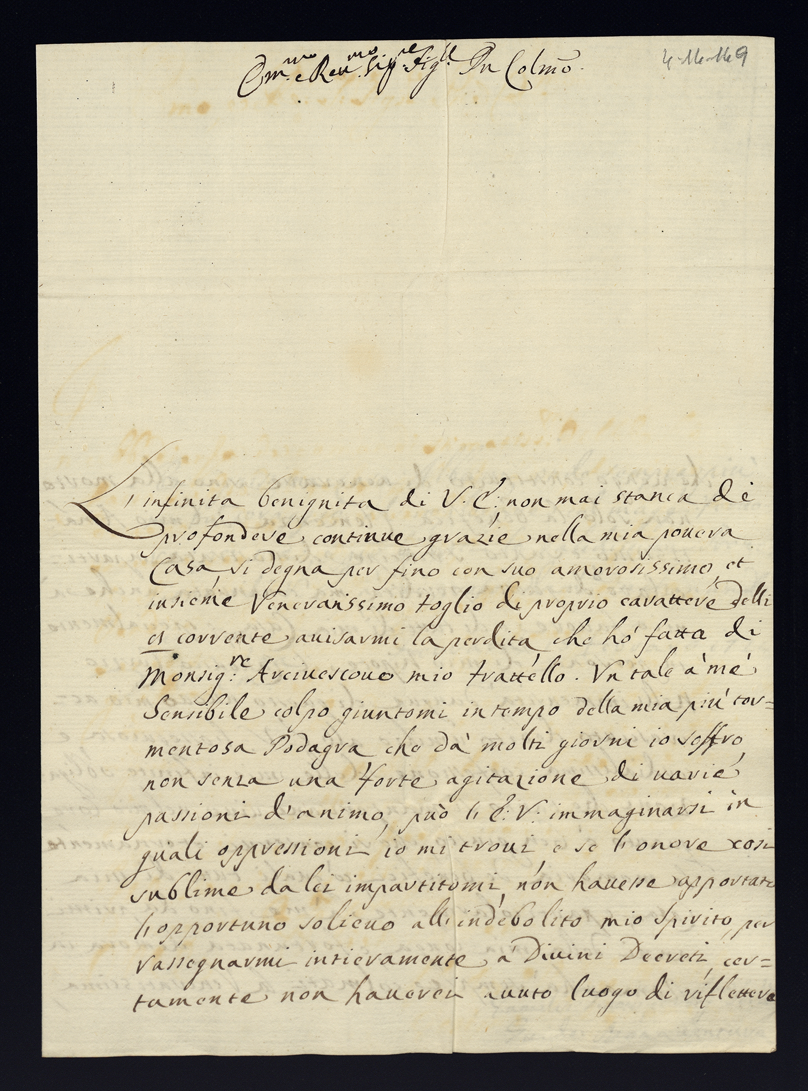 Em.mo e Rev.mo Sig.re Sig.r Pn Colmo.
4-14-149
L'infinita benignita di V. E: non mai stanca dè
profondere continue grazie nella mia povera
Casa si degna per fino con suo amorosissimo, et
insieme Veneratissimo foglio di proprio carattere delli
corrente avisarmi la perdita che hò fatta di
Monsig.re Arcivescovo mio frattello. Un tale à mé
Sensibile colpo giuntomi in tempo della mia più tor=
mentosa Podagra che dà molti giorni io soffro,
non senza una forte agitazione di varie
passioni d'animo, può l'E: V: immaginarsi in
quali oppressioni io mi trovi e se l'onore così
sublime da lei impartitomi, nón havesse apportato
l'opportuno solievo all'indebolito mio Spirito, per
rassegnarmi intieramente à Divini Decreti, cer=
tamente non haverei avuto luogo di riflettere